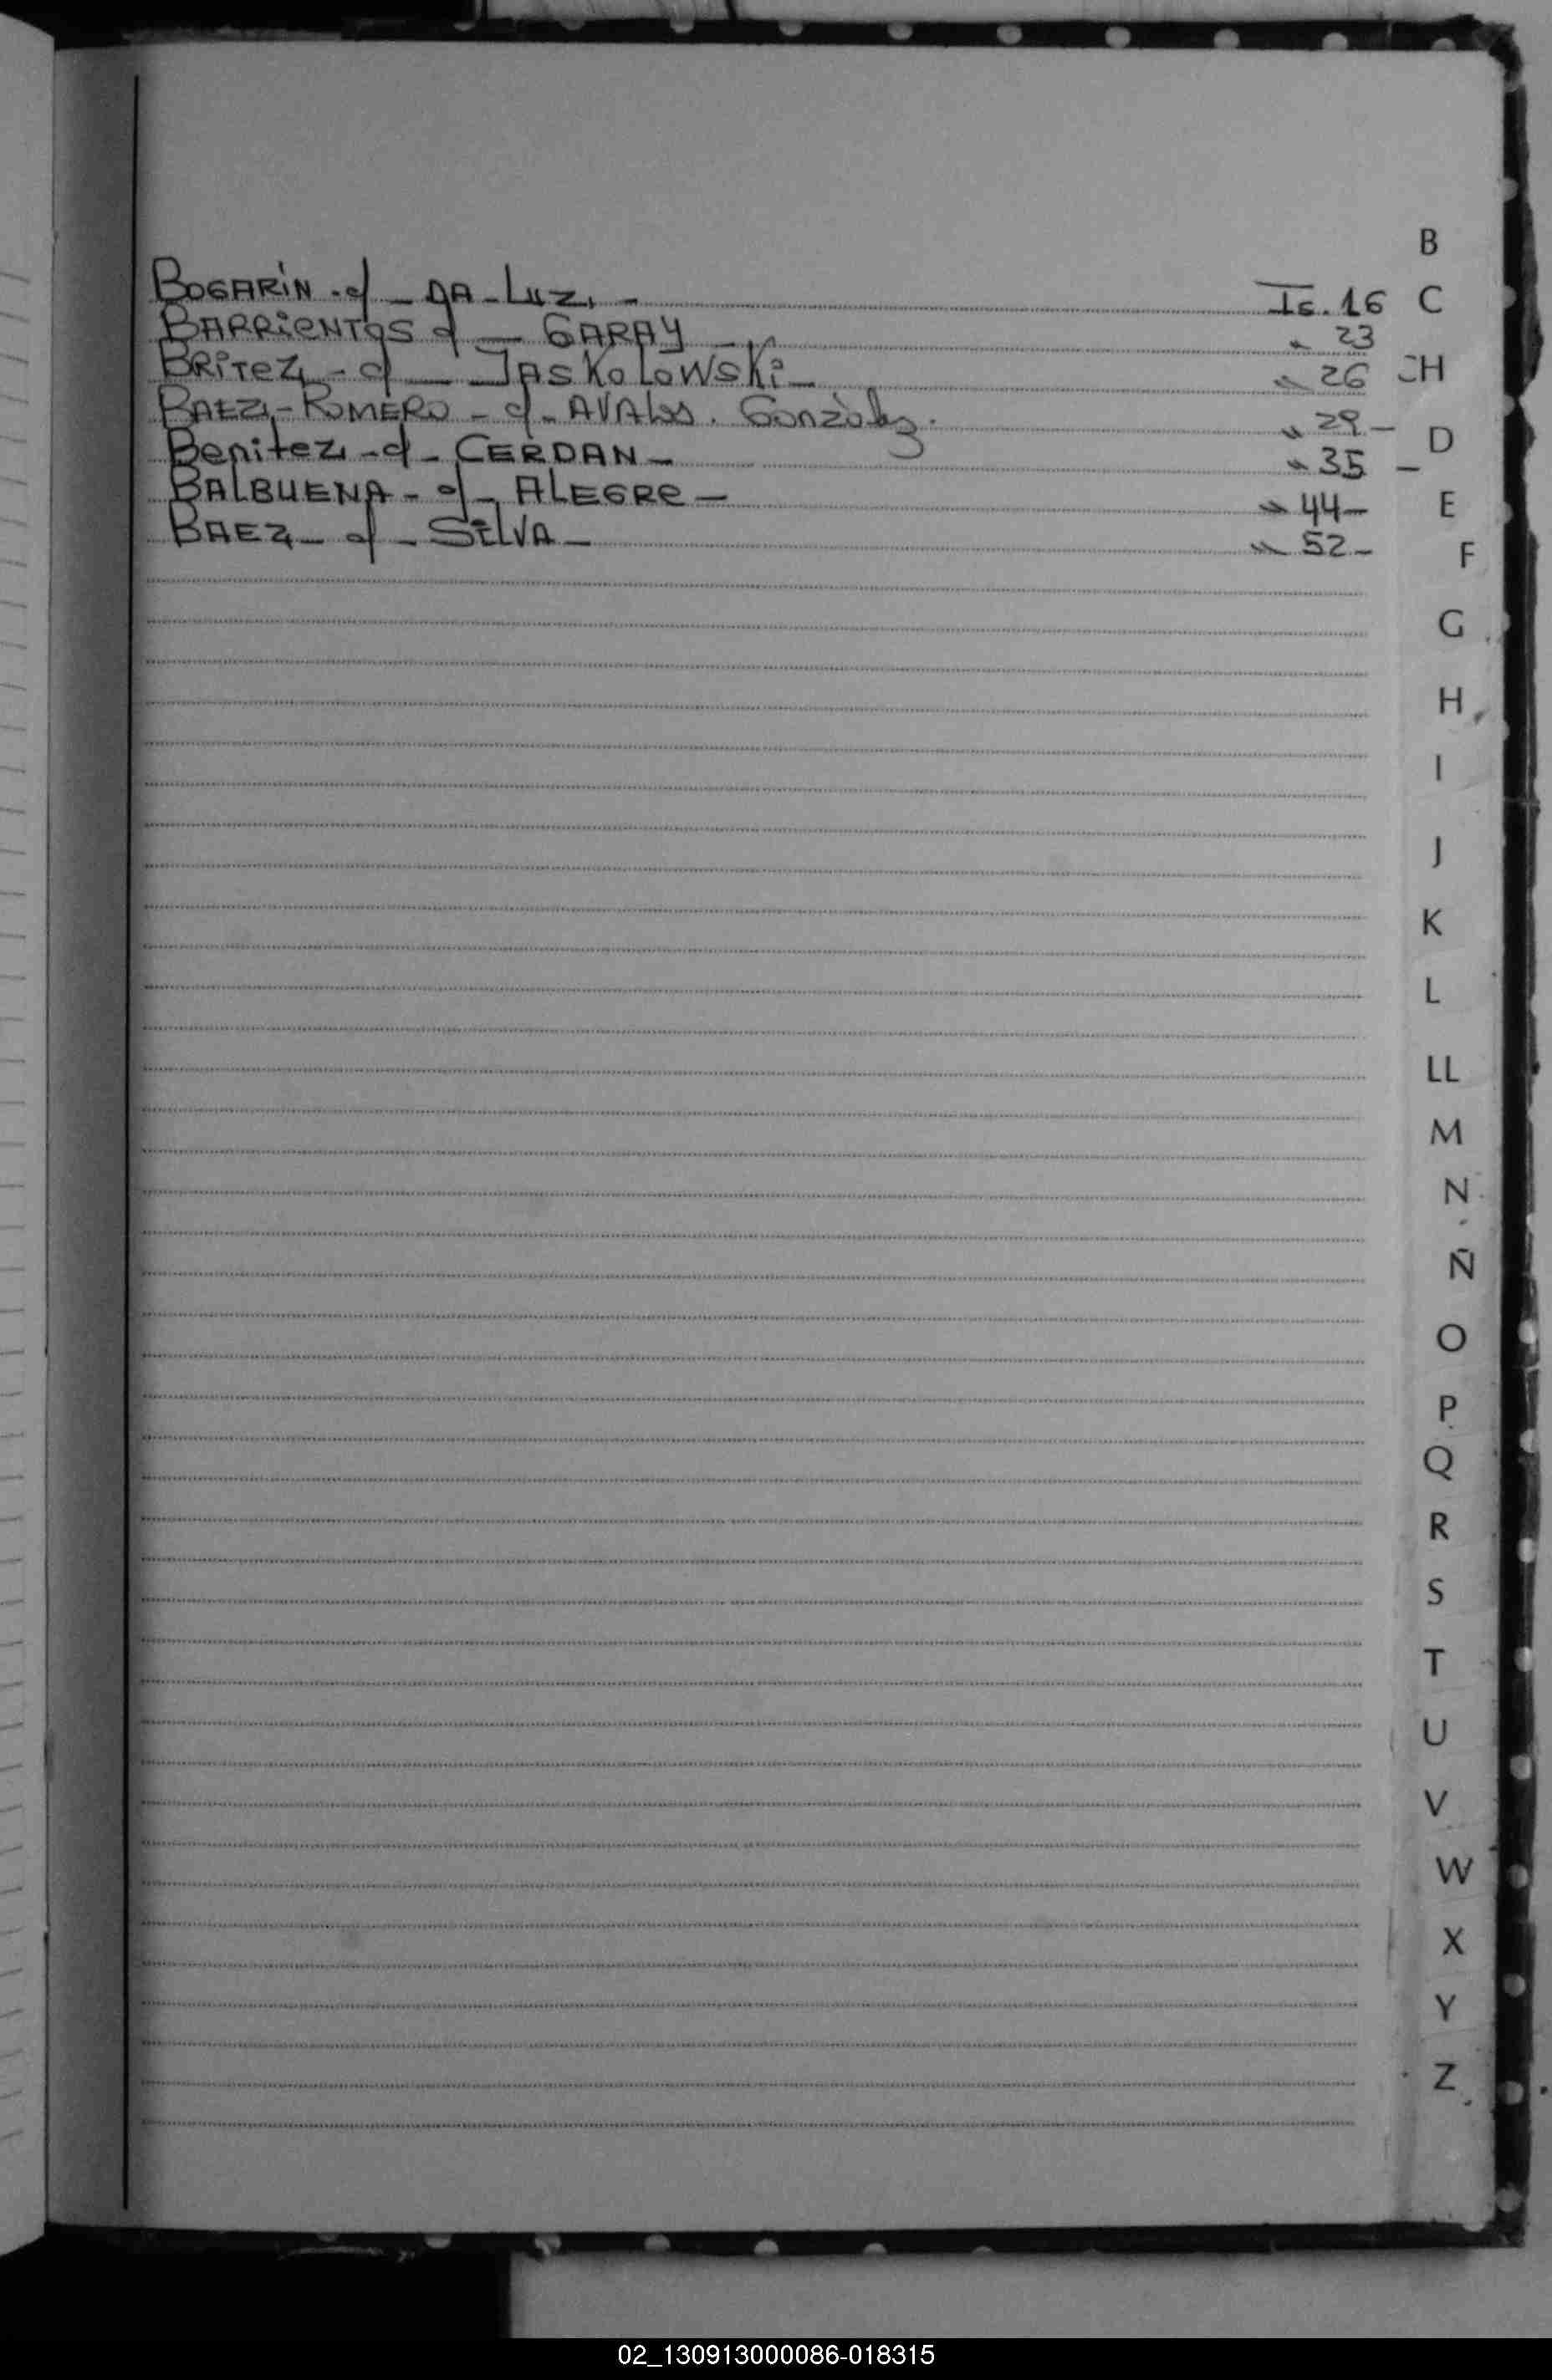 B
BOGARIN - c/ - DA - LUZ - Is. 16
C
BARRIENTOS c/ - GARAY - " 23
BRITEZ - c/ - JASKOLOWSKI - " 26
CH
BAEZ - ROMERO - c/ - AVALOS. Gonzàlez. " 29 -
D
Benitez - c/ - CERDAN - " 35 -
BALBUENA - c/ - ALEGRE - " 44 -
E
BAEZ - c/ - SILVA - " 52 -
F
G
H
I
J
K
L
LL
M
N
Ñ
O
P
Q
R
S
T
U
V
W
X
Y
Z
02_130913000086-018315